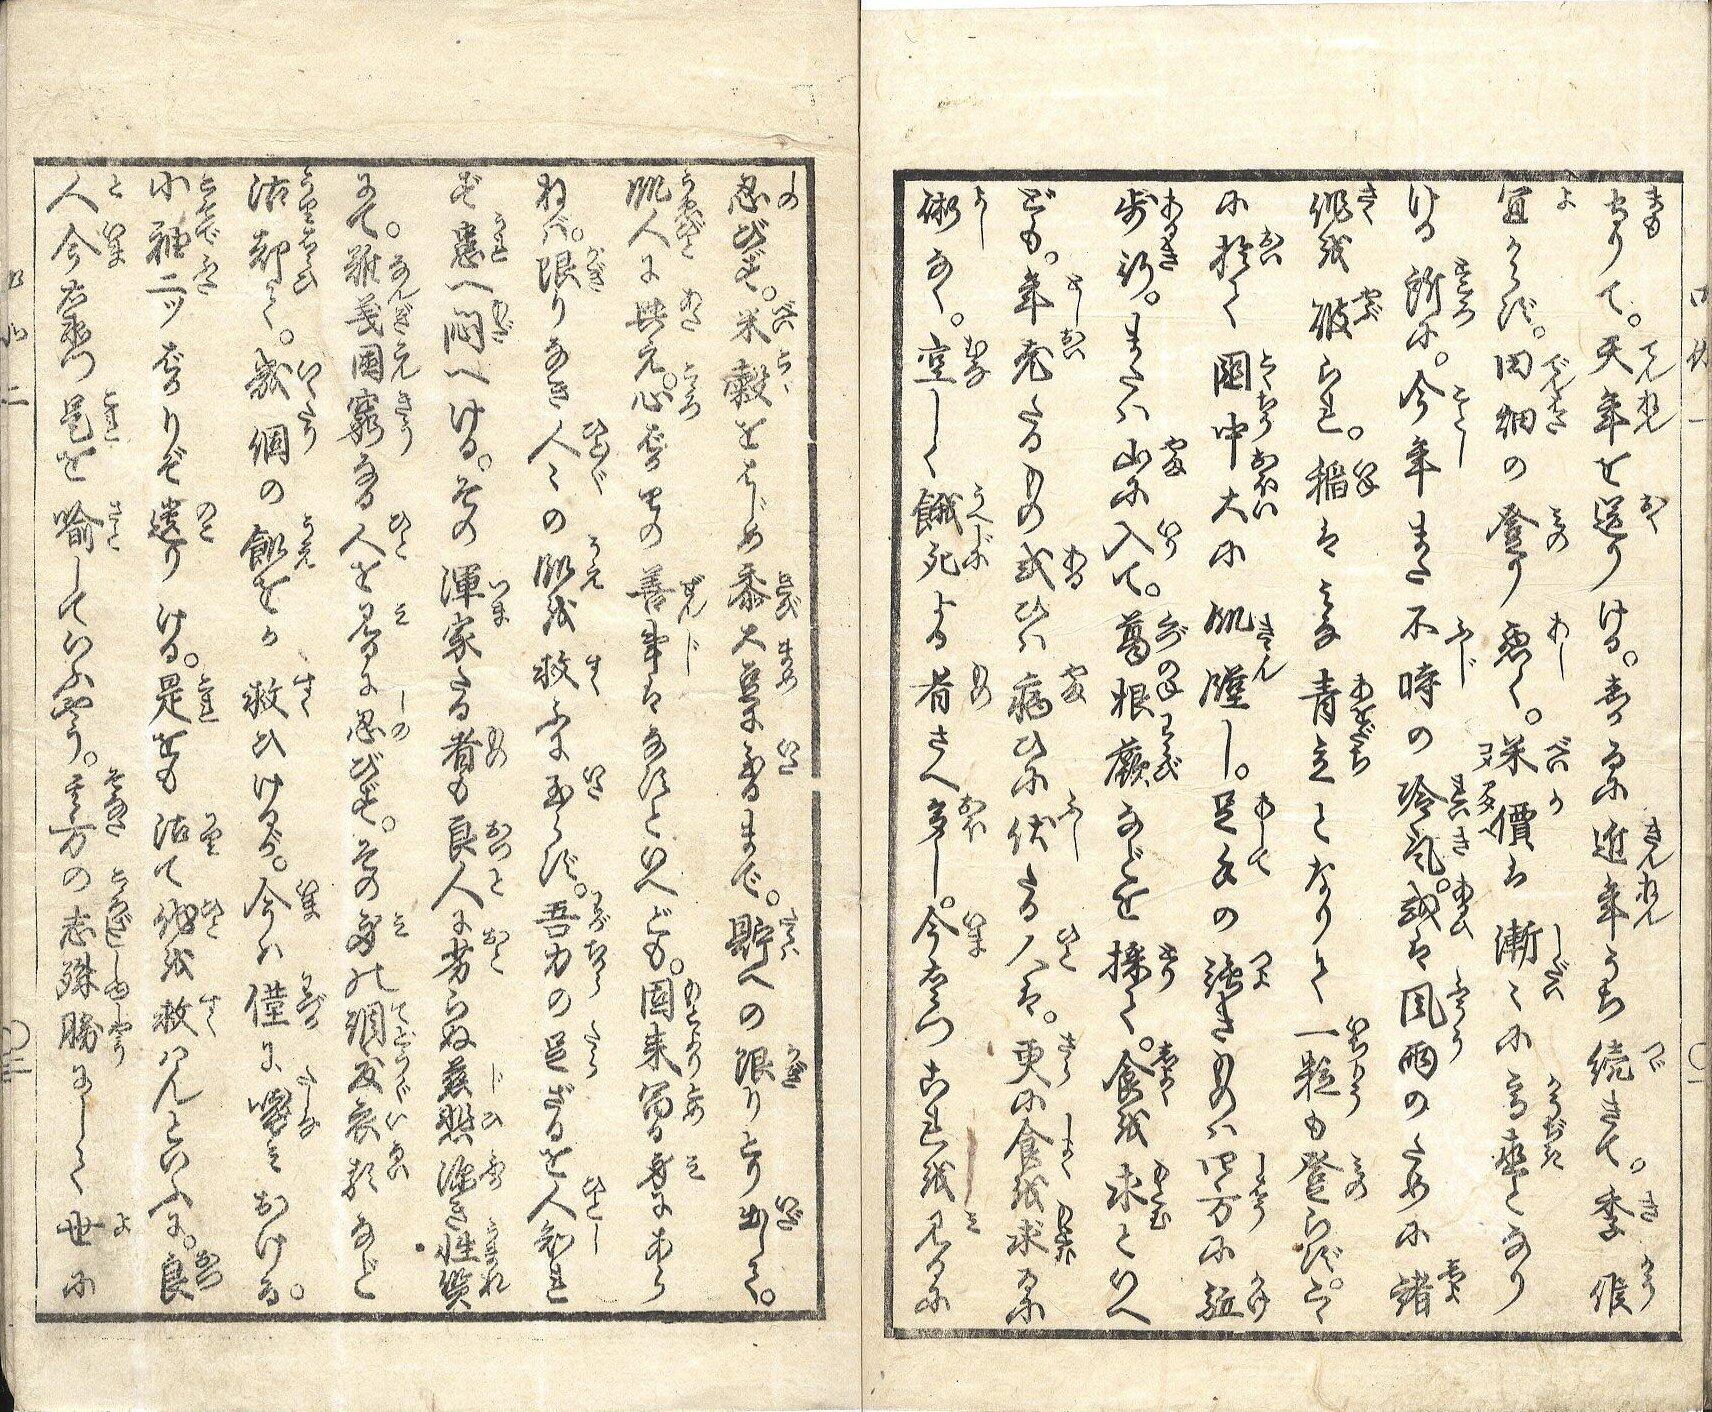 守りて。天年を送りける。春るに近年うち続きて。季候
宜からず。田畑の登り悪く。米價は漸々に高直となり
ける所に。今年また不時の冷氣。或は風雨のために諸
作破られ。稲はみな青立となりて一粒も登らず。
に於て國中大に飢饉し。足手の強きものは四方に
歩行。または山に入て。葛根蕨などを採て。食を求といへ
ども。年老たるもの或ひは病ひに伏たる人は。更に食を求るに
術なく。空しく餓死する者さへ多し。今右衛門これを見るに
忍びず。米穀をはじめ黍大豆にいたるまで。貯への限りとり出して。
飢人に與え。心計の善事はなすといへども。固来冨る身にあら
ねば。限りなき人々の飢を救ふに至らず。吾力の足ざるを人知れ
ず患へ悶へける。その渾家たる者も良人に劣らぬ慈悲深き性質
にて。難義困窮なる人を見るに忍びず。その身の調度衣類など
沽却して。数個の飢をか救ひけるが。今は僅に嗜みおける。
小袖二ツ計りぞ遺りける。是をも沽て他を救はんといふに。良
人今右衛門是を喩していふやう。其方の志殊勝にして世に